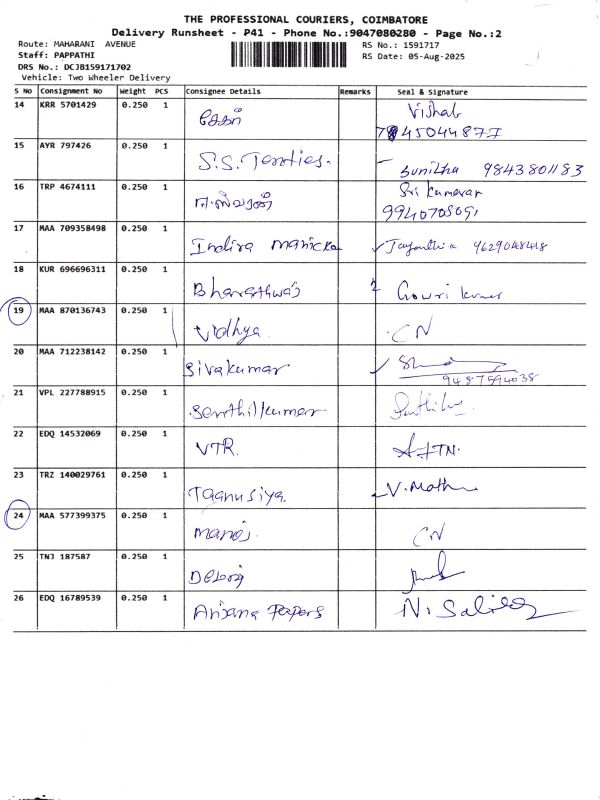 THE PROFESSIONAL COURIERS, COIMBATORE
Delivery Runsheet - P41 - Phone No.:9047080280 - Page No.:2
Route: MAHARANI AVENUE
RS No.: 1591717
Staff: PAPPATHI
RS Date: 05-Aug-2025
DRS No.: DCJB159171702
Vehicle: Two Wheeler Delivery
S No Consignment No Weight PCS Consignee Details Remarks Seal & Signature
14 KRR 5701429 0.250 1 சேகர் Vishal
15 AYR 797426 0.250 1 S.S. Sunitha 9843801183
16 TRP 4674111 0.250 1 ஈஸ்வரன் Sri Kumaran
17 MAA 709358498 0.250 1 Indira Manicka Jayanthi 9629048418
18 KUR 696696311 0.250 1 Bharathwaj Gowri Kumar
19 MAA 870136743 0.250 1 Vidhya CN
20 MAA 712238142 0.250 1 Sivakumar
9487594038
21 VPL 227788915 0.250 1 Senthilkumar
22 EDQ 14532069 0.250 1 VTR.
23 TRZ 140029761 0.250 1 Taanusiya V. Math
24 MAA 577399375 0.250 1 Manoj. CN
25 TNJ 187587 0.250 1
26 EDQ 16789539 0.250 1 Papers N.